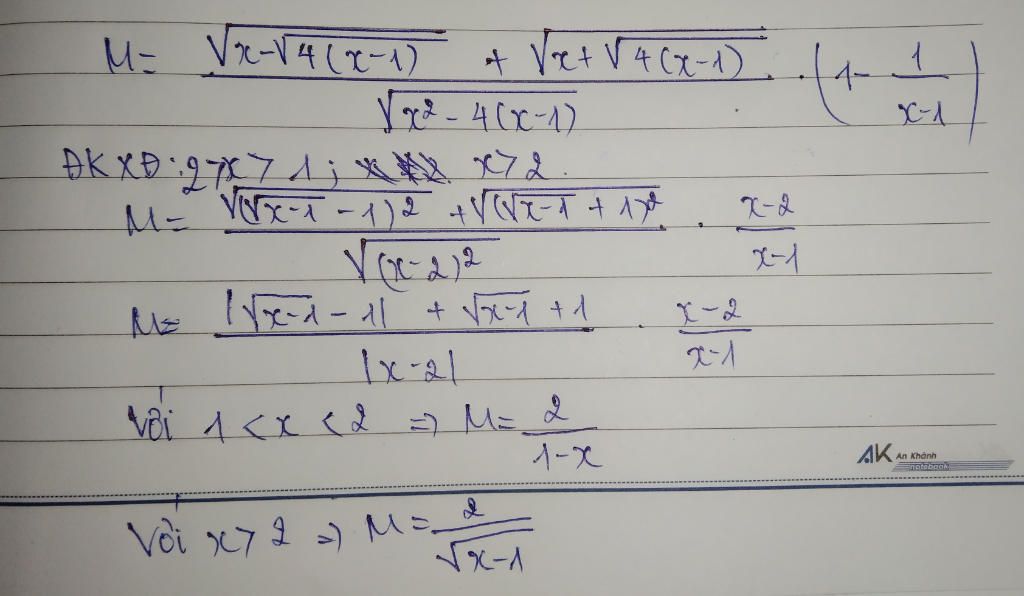 M = \frac{\sqrt{x-\sqrt{4(x-1)}} + \sqrt{x+\sqrt{4(x-1)}}}{\sqrt{x^2-4(x-1)}} . \left(1-\frac{1}{x-1}\right)
ĐKXĐ: 2>x>1; x>2.
M = \frac{\sqrt{(\sqrt{x-1}-1)^2} + \sqrt{(\sqrt{x-1}+1)^2}}{\sqrt{(x-2)^2}} . \frac{x-2}{x-1}
M = \frac{|\sqrt{x-1}-1| + \sqrt{x-1}+1}{|x-2|} . \frac{x-2}{x-1}
Với 1<x<2 => M = \frac{2}{1-x}
AK An Khánh
notebook
Với x>2 => M = \frac{2}{\sqrt{x-1}}